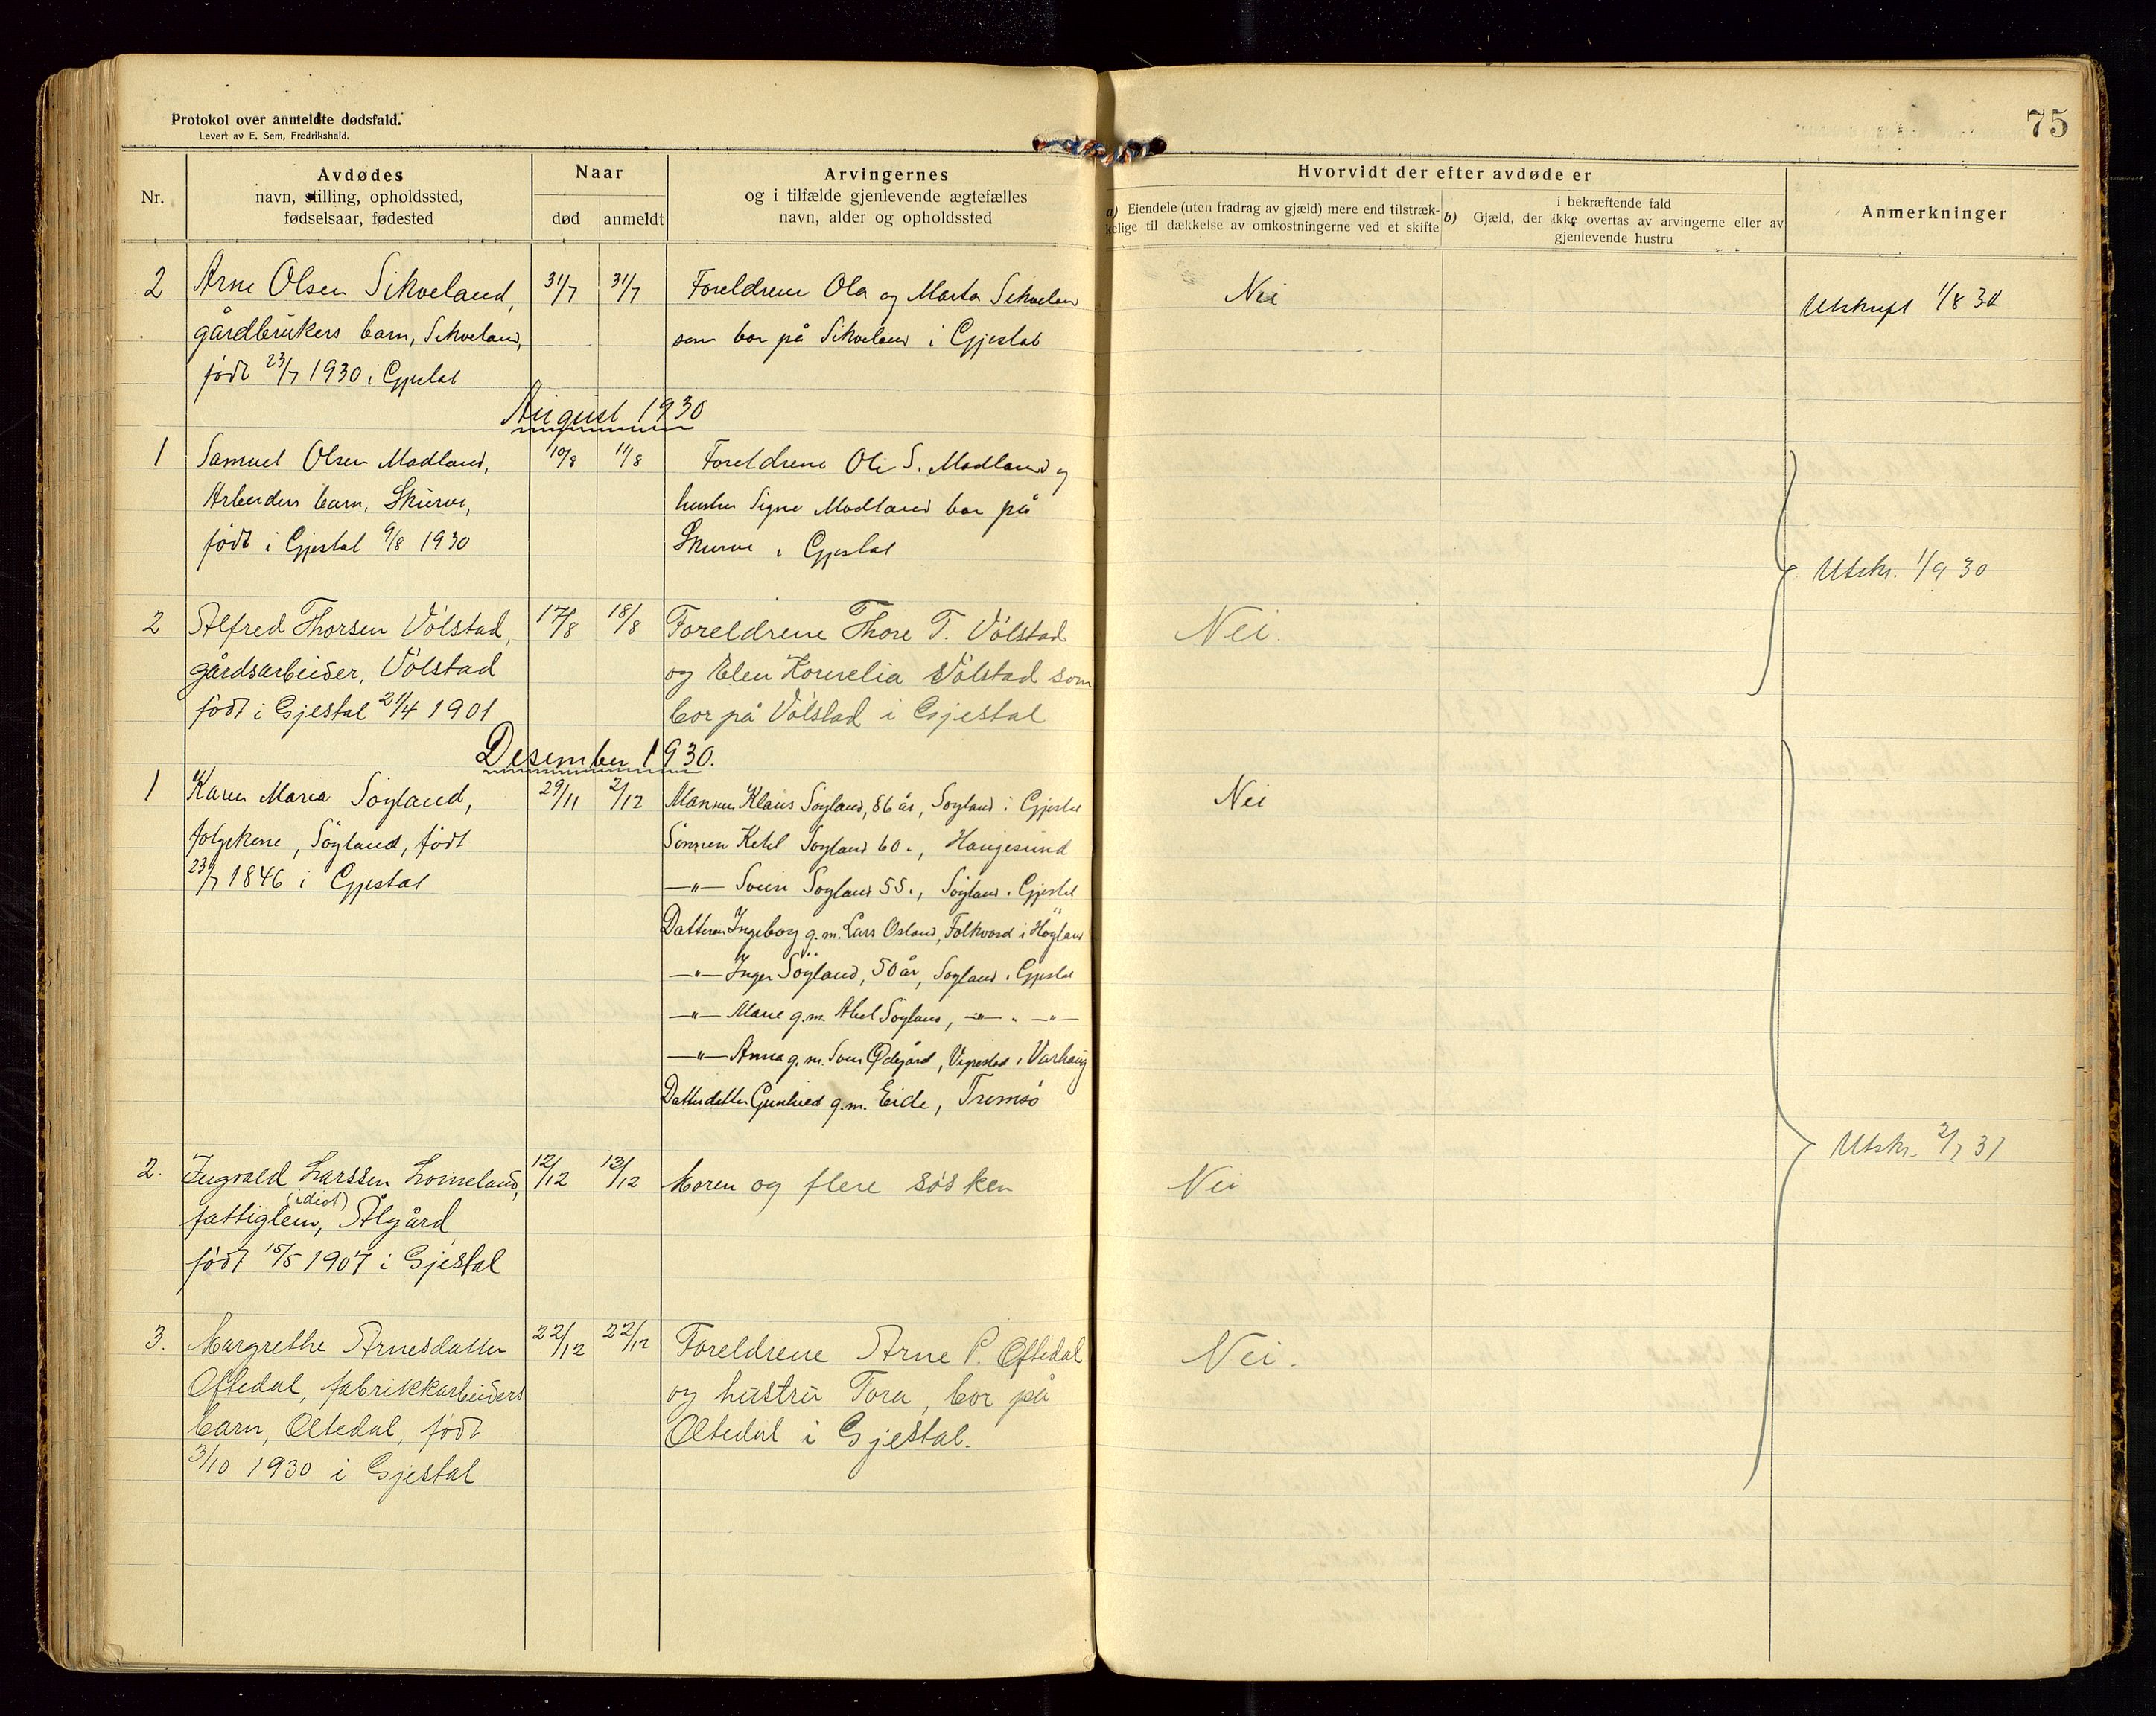 Protokol over anmeldte dødsfald.
Levert av E. Sem, Fredrikshald.
75
Nr.
Avdødes
navn, stilling, opholdssted,
fødselsaar, fødested
Naar
død
anmeldt
Arvingernes
og i tilfælde gjenlevende ægtefælles
navn, alder og opholdssted
Hvorvidt der efter avdøde er
a) Eiendele (uten fradrag av gjæld) mere end tilstræk-
kelige til dækkelse av omkostningerne ved et skifte
i bekræftende fald
b) Gjæld, der ikke overtas av arvingerne eller av
gjenlevende hustru
Anmerkninger
2 Arne Olsen Sikveland, 31/7 31/7 Foreldrene Ola og Marta Sikveland Nei Utskrift 1/8 30
gårdbrukers barn, Sikveland, som bor på Sikveland i Gjestal
født 23/7 1930 i Gjestal
August 1930
1 Samuel Olsen Madland, 10/8 11/8 Foreldrene Ole S. Madland og
Arbeiders barn, Skurve, hustru Signe Madland bor på
født i Gjestal 9/8 1930 Skurve i Gjestal
Utskr. 1/9 30
2 Alfred Thorsen Völstad, 17/8 18/8 Foreldrene Thore T. Völstad Nei.
gårdsarbeider, Völstad og Elen Kornelia Völstad som
født i Gjestal 21/4 1901 bor på Völstad i Gjestal
Desember 1930.
1 Karen Maria Söyland, 29/11 2/12 Mannen Klaus Söyland, 86 år, Söyland i Gjestal Nei
folgekone, Söyland, født Sönnen Ketil Söyland 60 ", Haugesund
23/7 1846 i Gjestal —"— Svein Söyland 55 ", Söyland i Gjestal
Datteren Ingeborg g.m. Lars Osland, Folkvord i Høyland
—"— Inger Söyland, 50 år, Söyland i Gjestal
—"— Marie g.m. Abel Söyland, —"— " —"—
—"— Anna g.m. Ødegård, i Varhaug
Datterdatter g.m. Eide, Tromsö
Utskr. 2/1 31
2. Ingvald Larssen 12/12 13/12 Moren og flere søsken Nei
(idiot)
fattiglem, Ålgård
født 15/5 1907 i Gjestal
3. Margrethe Arnesdatter 22/12 22/12 Foreldrene Arne P. Oftedal Nei.
Oftedal, fabrikkarbeiders og hustru Tora, bor på
barn, Oltedal, født Oltedal i Gjestal.
3/10 1930 i Gjestal